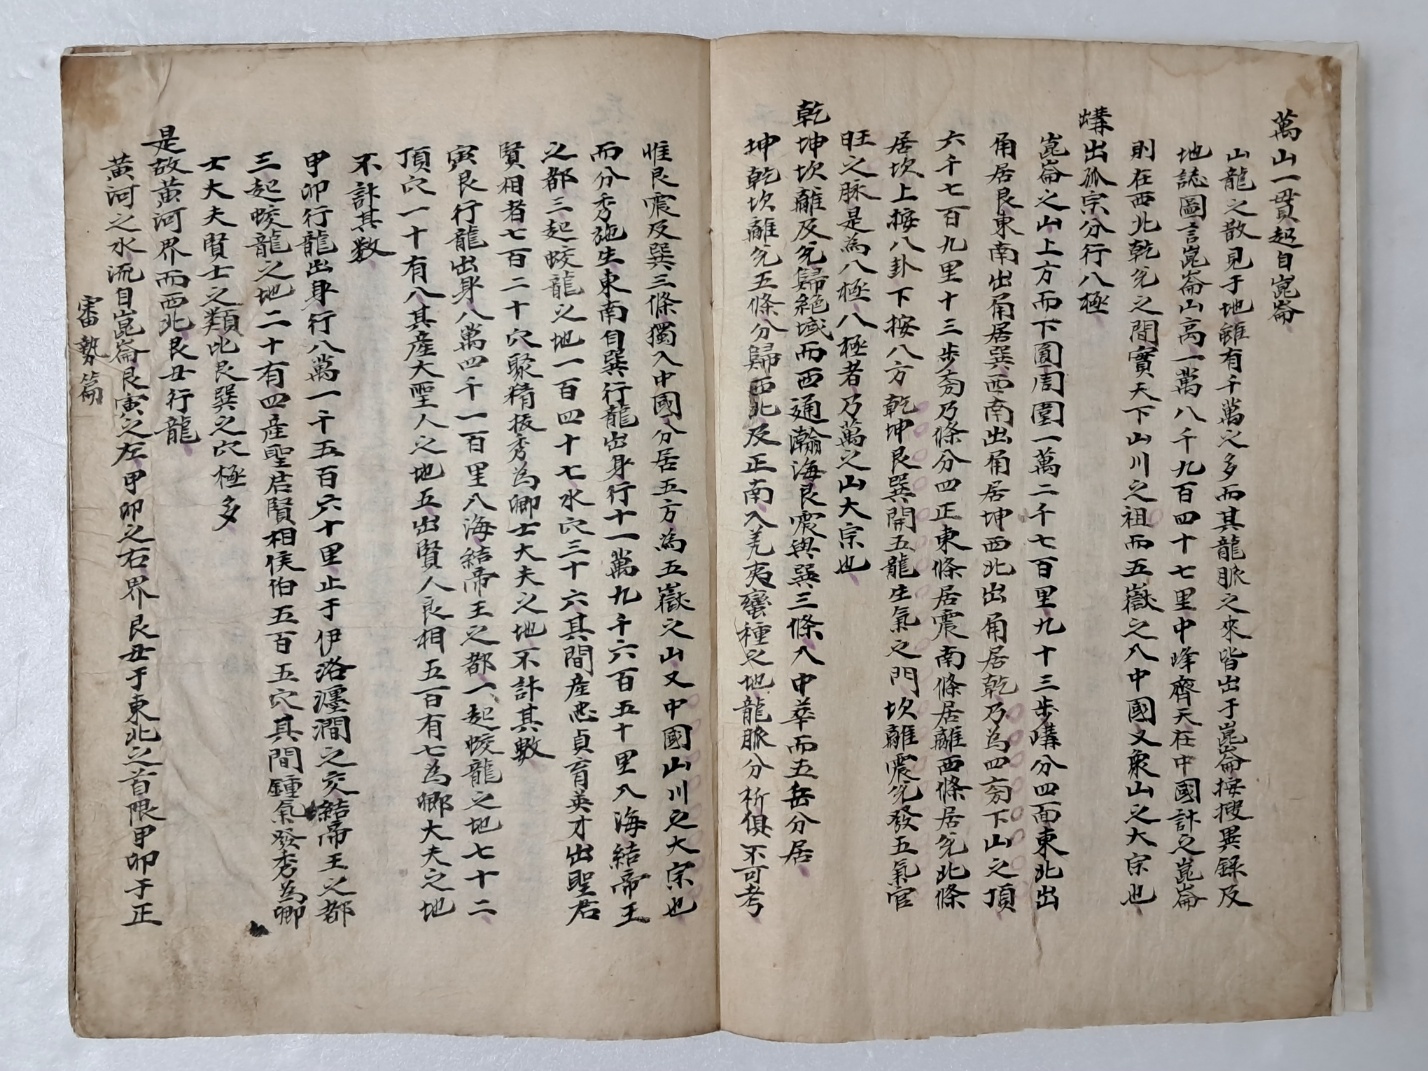 萬山一貫起自崑崙
山龍之散見于地雖有千萬之多而其龍脈之來皆出于崑崙按搜異録及
地誌圖言崑崙山高一萬八千九百四十七里中峰齊天在中國計之崑崙
則在西北乾兌之間實天下山川之祖而五嶽之入中國又衆山之大宗也
構出孤宗分行八極
崑崙之山上方而下圓周圍一萬二千七百里九十三步構分四面東北出
角居艮東南出角居巽西南出角居坤西北出角居乾乃為四旁下山之頂
六千七百九里十三步旁乃條分四正東條居震南條居離西條居兌北條
居坎上按八卦下按八方乾坤艮巽開五龍生氣之門坎離震兌發五氣官
旺之脉是為八極八極者乃萬之山大宗也
乾坤坎離及兌歸絕域而西通瀚海艮震與巽三條入中華而五岳分居
坤乾坎離兌五條分歸西北及正南入羌夷蠻種之地龍脈分析俱不可考
惟艮震及巽三條獨入中國分居五方為五嶽之山又中國山川之大宗也
而分秀弛生東南自巽行龍出身行十一萬九千六百五十里入海結帝王
之都三起蛟龍之地一百四十七水穴三十六其間産忠貞育英才出聖君
賢相者七百二十穴聚精拔秀為卿士大夫之地不計其數
寅艮行龍出身八萬四千一百里入海結帝王之都一起蛟龍之地七十二
頂穴一十有八其産大聖人之地五出賢人良相五百有七為卿大夫之地
不計其數
甲卯行龍出身行八萬一千五百六十里止于伊洛瀍澗之交結帝王之都
三起蛟龍之地二十有四産聖君賢相侯伯五百五穴其間鍾氣發秀為卿
士大夫賢士之類比艮巽之穴極多
是故黃河界而西北艮丑行龍
黃河之水流自崑崙艮寅之左甲卯之右界艮丑于東北之首限甲卯于正
審勢篇